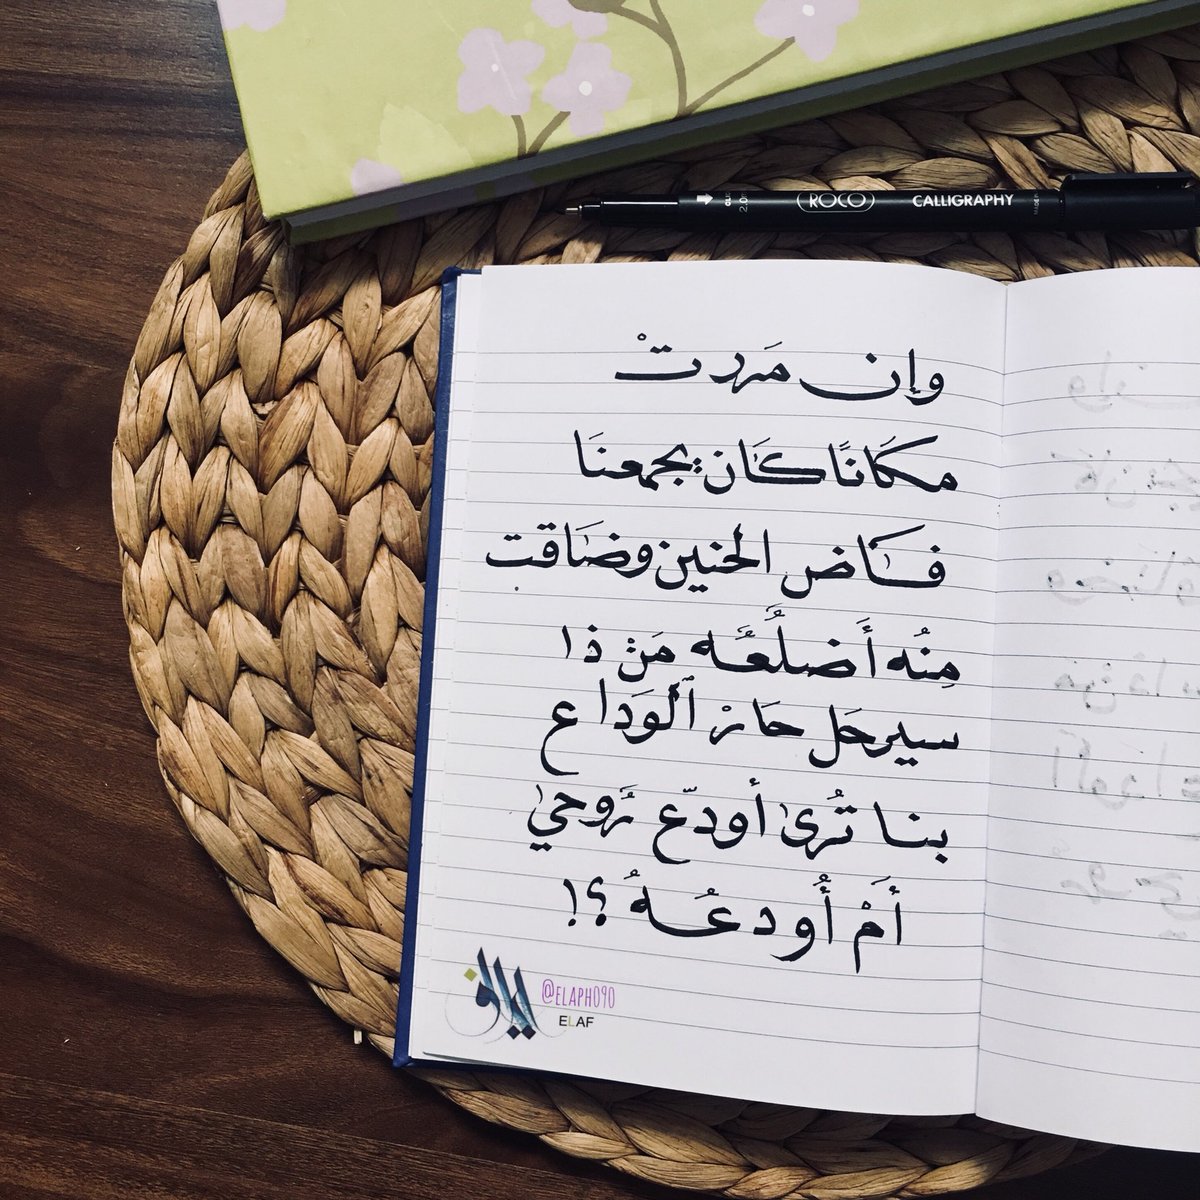 ROCO CALLIGRAPHY
وإن مَررتْ
مكَانًا كَان يجمعنَا
فَاض الحنين وضَاقت
مِنُه أَضلُعُه مَنْ ذا
سيرحَل حَارْ ٱلوَداع
بنا تُرىٰ أودّع رُوحيْ
أَمْ أُودعُهُ ؟!
إيلاف
@ELAPH090
ELAF